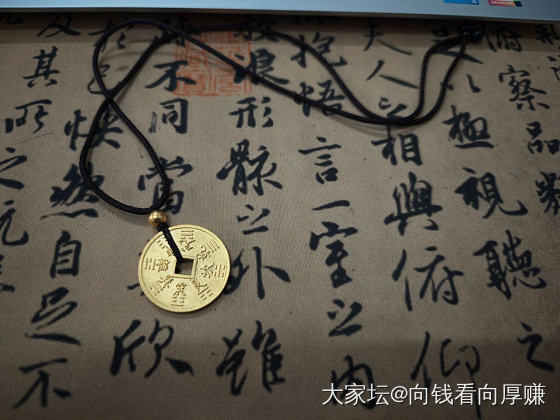 察品類
足以極視聽之
夫人之相與俯仰
抱悟言一室之內
放浪形骸之外雖
不同當欣
快然自足不
及其所之既
大家坛@向钱看向厚赚